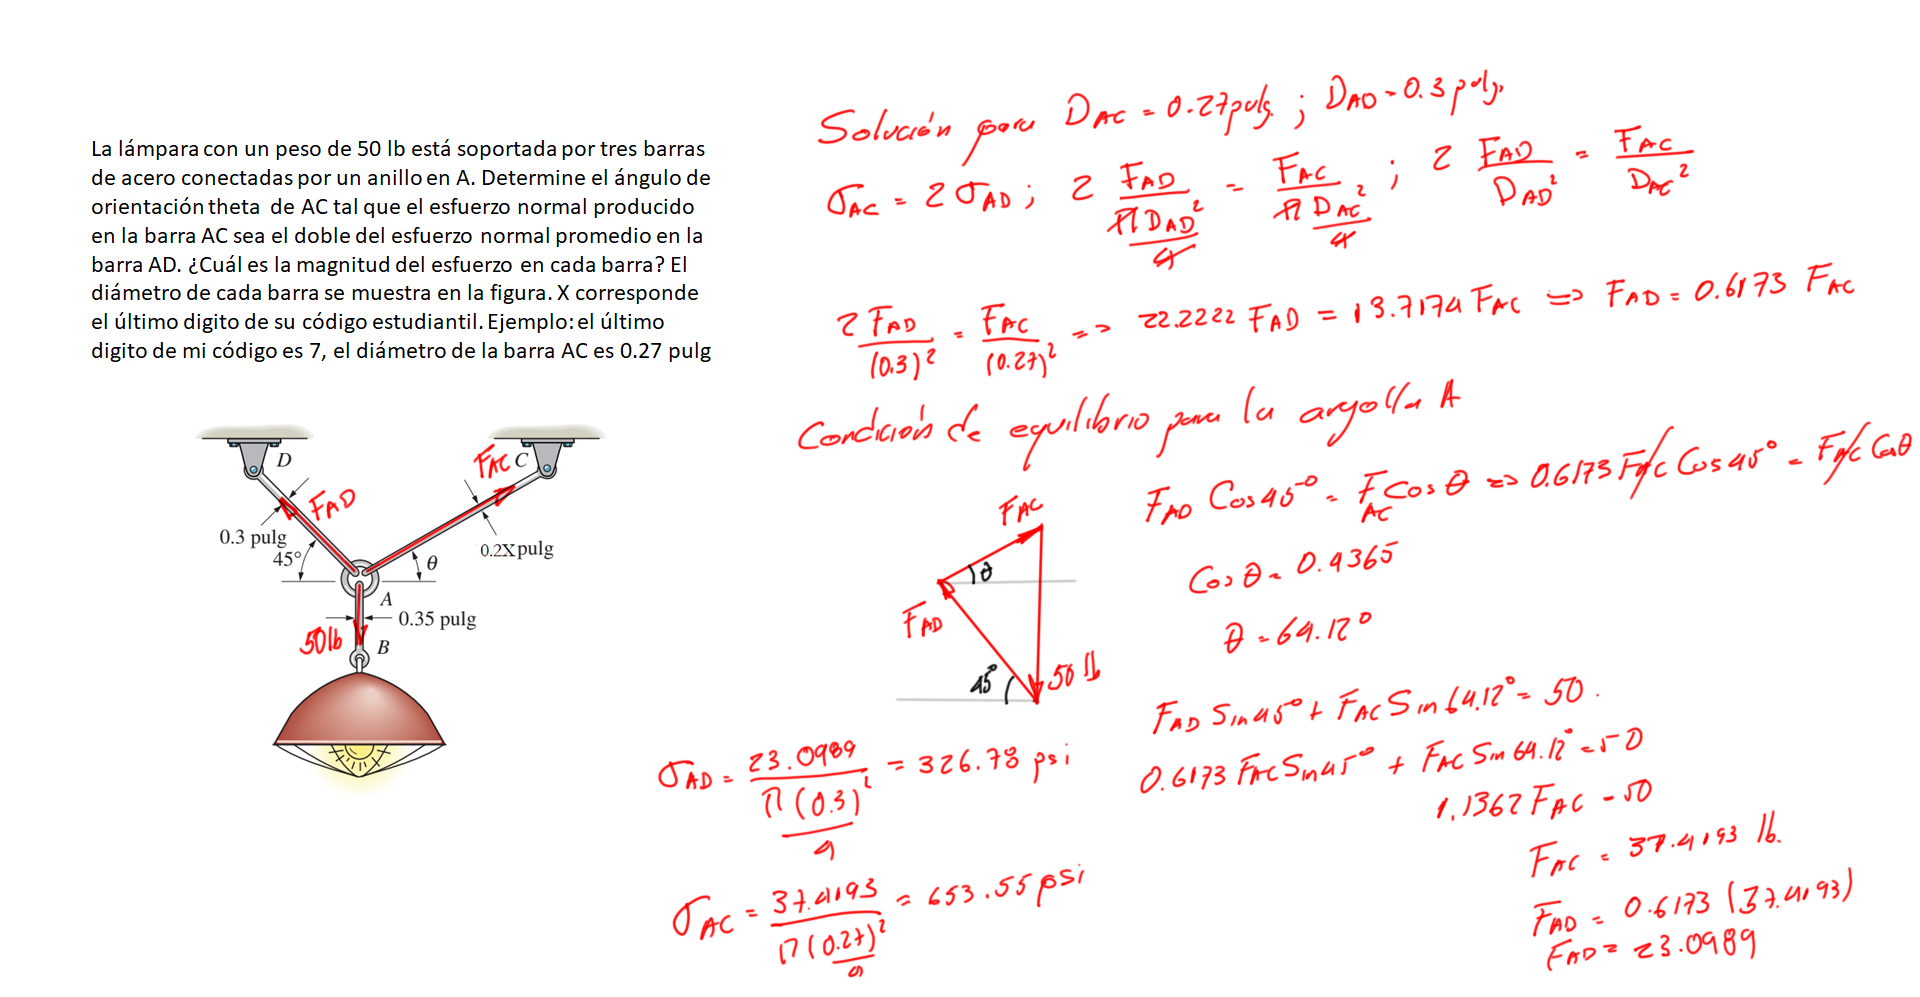 La lámpara con un peso de 50 lb está soportada por tres barras
de acero conectadas por un anillo en A. Determine el ángulo de
orientación theta de AC tal que el esfuerzo normal producido
en la barra AC sea el doble del esfuerzo normal promedio en la
barra AD. ¿Cuál es la magnitud del esfuerzo en cada barra? El
diámetro de cada barra se muestra en la figura. X corresponde
el último digito de su código estudiantil. Ejemplo: el último
digito de mi código es 7, el diámetro de la barra AC es 0.27 pulg
D
FAC C
FAD
0.3 pulg
45°
θ
0.2X pulg
A
0.35 pulg
50 lb
B
Solución para DAC = 0.27 pulg. ; DAD = 0.3 pulg.
σAC = 2 σAD ; 2 FAD / (π DAD² / 4) = FAC / (π DAC² / 4) ; 2 FAD / DAD² = FAC / DAC²
2 FAD / (0.3)² = FAC / (0.27)² => 22.2222 FAD = 13.7174 FAC => FAD = 0.6173 FAC
Condición de equilibrio para la argolla A
FAC
θ
FAD
45°
50 lb
FAD Cos 45° = FAC Cos θ => 0.6173 FAC Cos 45° = FAC Cos θ
Cos θ = 0.4365
θ = 64.12°
FAD Sin 45° + FAC Sin 64.12° = 50.
0.6173 FAC Sin 45° + FAC Sin 64.12° = 50
1.1362 FAC = 50
FAC = 37.4193 lb.
FAD = 0.6173 (37.4193)
FAD = 23.0989
σAD = 23.0989 / (π (0.3)² / 4) = 326.78 psi
σAC = 37.4193 / (π (0.27)² / 4) = 653.55 psi